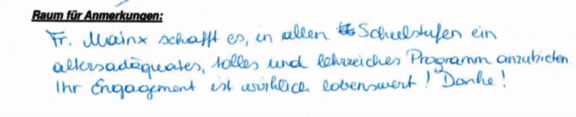 Raum für Anmerkungen:
Fr. Mainx schafft es, in allen Schulstufen ein
altersadäquates, tolles und lehrreiches Programm anzubieten.
Ihr Engagement ist wirklich lobenswert! Danke!